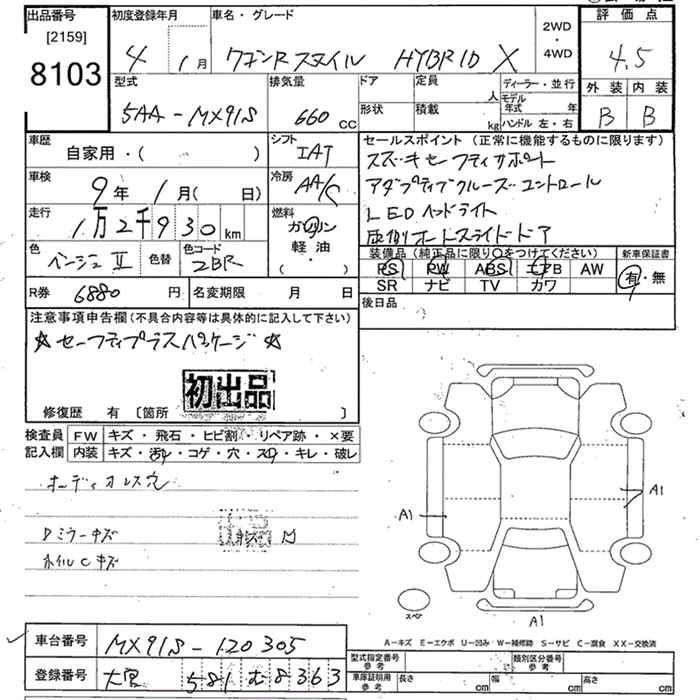 出品番号
[2159]
8103
初度登録年月
4 1月
車名・グレード
ワゴンRスマイル HYBRID X
2WD
・
4WD
評価点
4.5
外装 内装
B B
型式
5AA-MX91S
排気量
660 CC
ドア
形状
定員
人
積載
kg
ディーラー・並行
モデル年式 年
ハンドル 左・右
車歴
自家用・( )
シフト
IAT
車検
9年 1月( 日)
冷房
AA/C
走行
1万2千930km
燃料
ガソリン
軽油
・( )
色
ベージュII
色替
色コード
2BR
R券
6880円
名変期限 月 日
セールスポイント(正常に機能するものに限ります)
スズキセーフティサポート
アダプティブクルーズコントロール
LEDヘッドライト
両側オートスライドドア
装備品(純正品に限り○をつけてください)
PS PW ABS エアB AW
SR ナビ TV カワ
新車保証書
有・無
後日品
注意事項申告欄(不具合内容等は具体的に記入して下さい)
☆セーフティプラスパッケージ☆
初出品
修復歴 有〔箇所 〕
検査員記入欄
FW キズ・飛石・ヒビ割・リペア跡・×要
内装 キズ・汚れ・コゲ・穴・スレ・キレ・破レ
オーディオレス穴
Dミラーキズ
ホイルCキズ
A1
A1
A1
スペア
A-キズ E-エクボ U-凹み W-補修跡 S-サビ C-腐食 XX-交換済
車台番号
MX91S-120305
登録番号
大宮 581 む8363
型式指定番号 参考
類別区分番号 参考
車庫証明用 参考
長さ cm
幅 cm
高さ cm